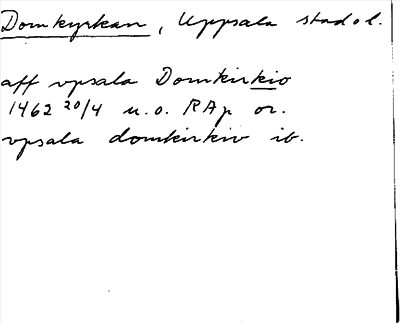 Domkyrkan, Uppsala stad o l.
aff vpsala Domkirkio
1462 20/4 u. o. RAp or.
vpsala domkirkio ib.